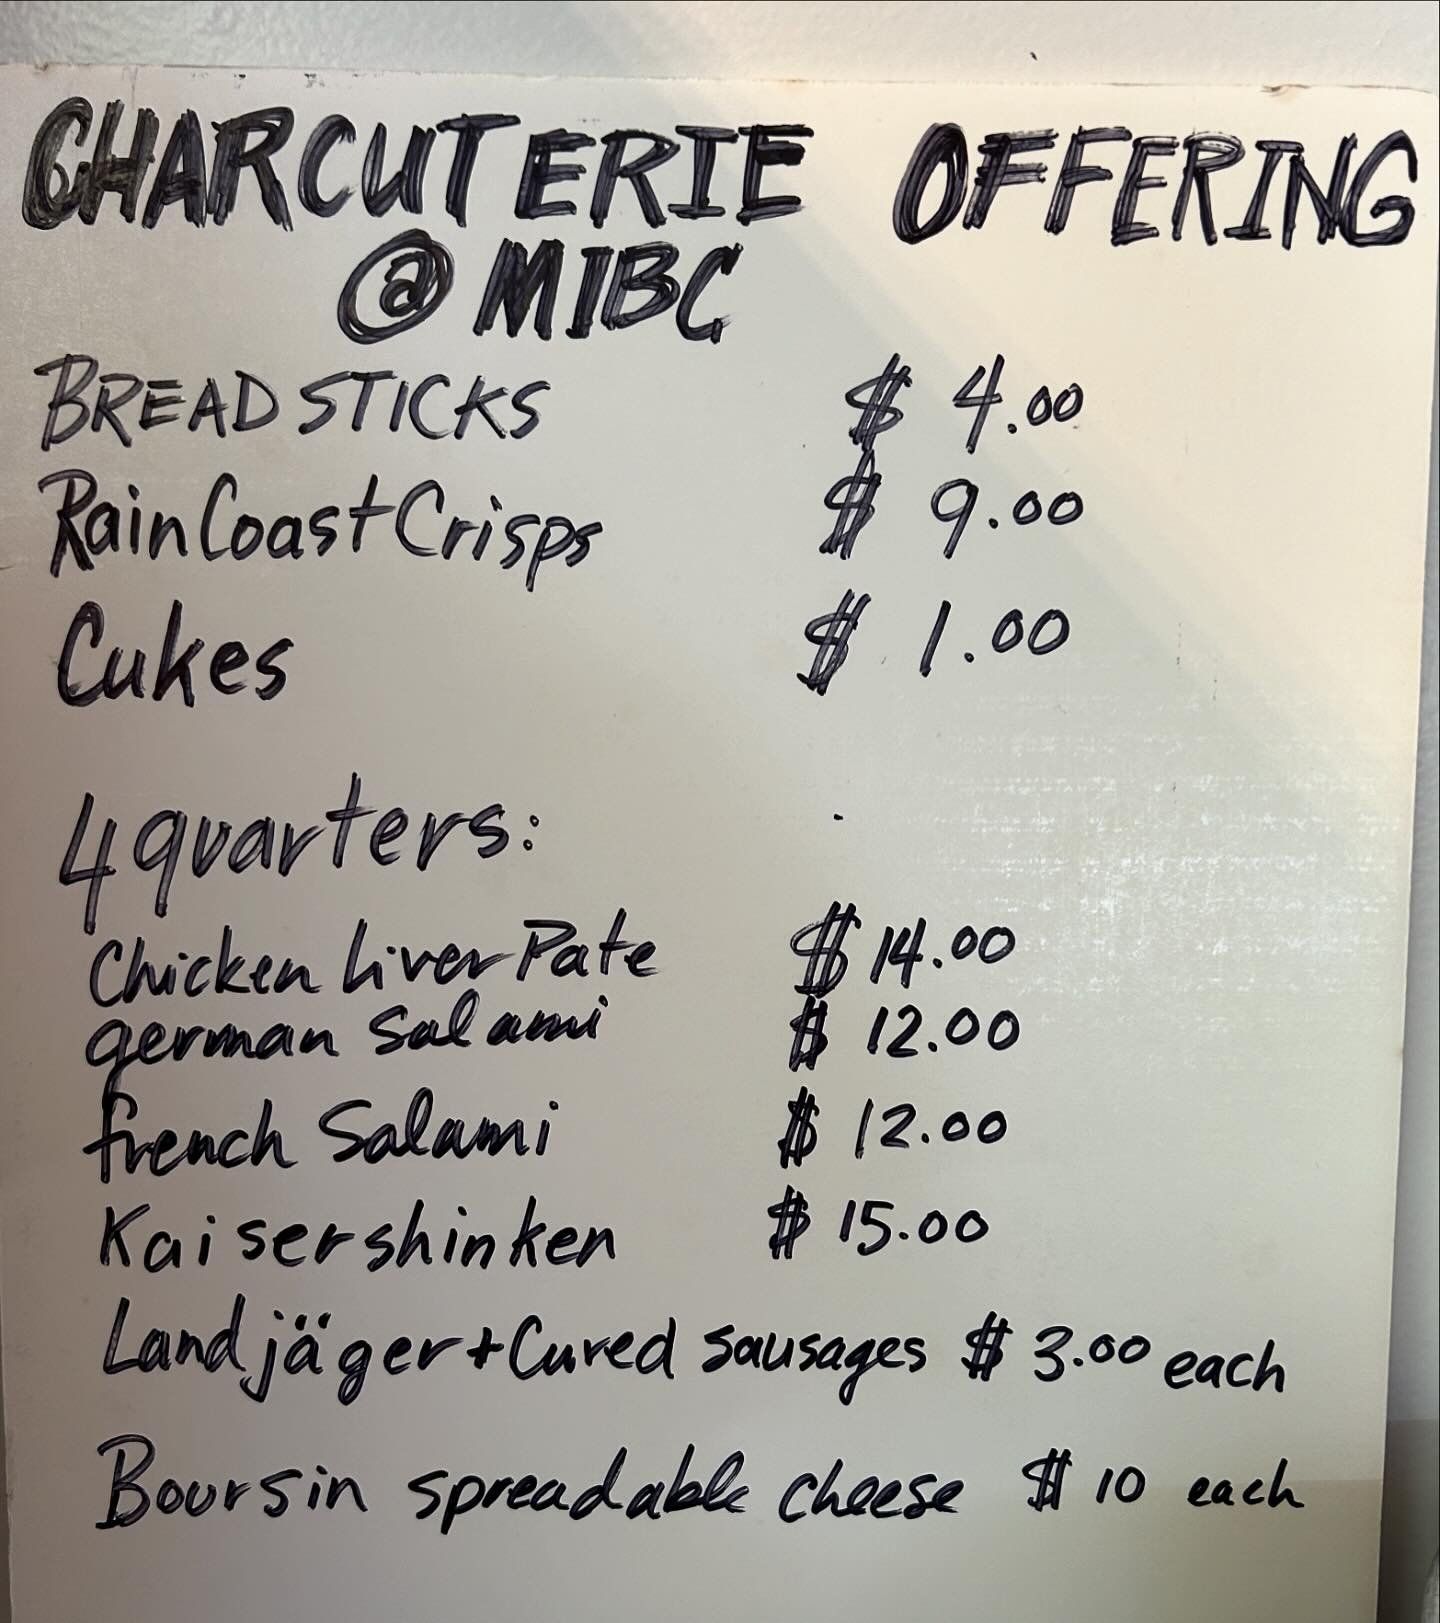 CHARCUTERIE OFFERING
@ MIBC
BREADSTICKS $ 4.00
RainCoast Crisps $ 9.00
Cukes $ 1.00
4 quarters:
Chicken Liver Pate $ 14.00
german Salami $ 12.00
french Salami $ 12.00
Kaisershinken $ 15.00
Landjäger + Cured sausages $ 3.00 each
Boursin spreadable cheese $ 10 each